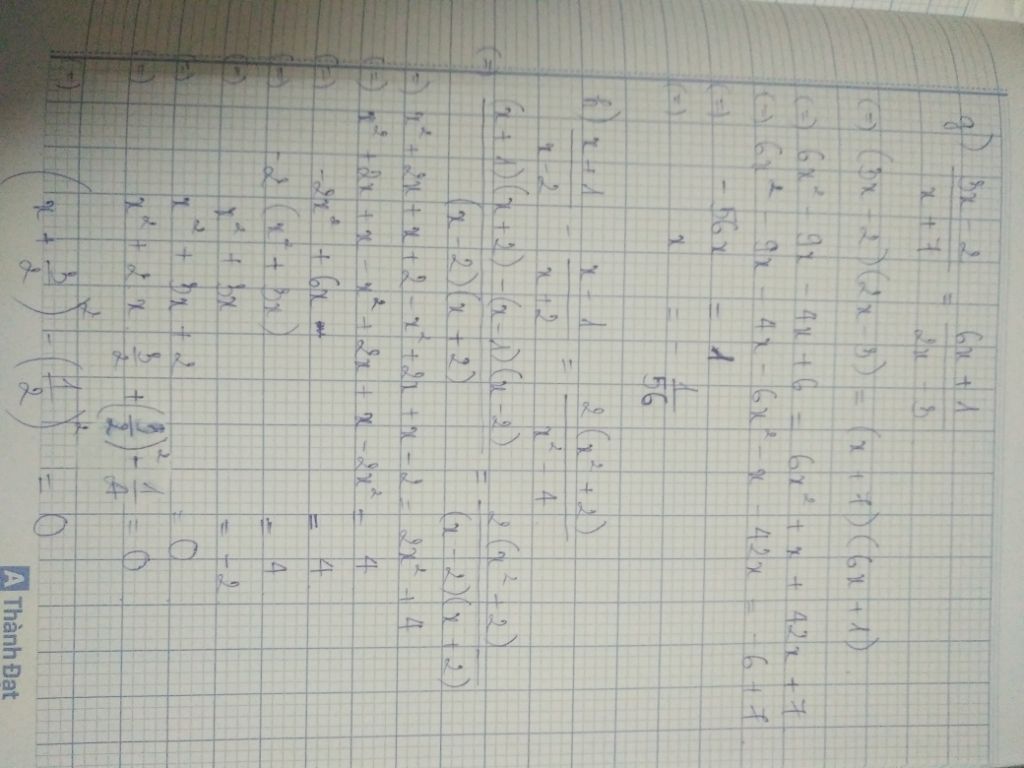 g) \frac{3x-2}{x+7} = \frac{6x+1}{2x-3}
(=) (3x-2)(2x-3) = (x+7)(6x+1)
(=) 6x² - 9x - 4x + 6 = 6x² + x + 42x + 7
(=) 6x² - 9x - 4x - 6x² - x - 42x = -6 + 7
(=) -56x = 1
(=) x = -\frac{1}{56}
h) \frac{x+1}{x-2} - \frac{x-1}{x+2} = \frac{2(x²+2)}{x²-4}
(=) \frac{(x+1)(x+2)-(x-1)(x-2)}{(x-2)(x+2)} = \frac{2(x²+2)}{(x-2)(x+2)}
(=) x² + 2x + x + 2 - x² + 2x + x - 2 = 2x² + 4
(=) x² + 2x + x - x² + 2x + x - 2x² = 4
(=) -2x² + 6x = 4
(=) -2(x² + 3x) = 4
(=) x² + 3x = -2
(=) x² + 3x + 2 = 0
(=) x² + 2x \frac{3}{2} + (\frac{3}{2})² - \frac{1}{4} = 0
(=) (x + \frac{3}{2})² - (\frac{1}{2})² = 0
A Thành Đạt